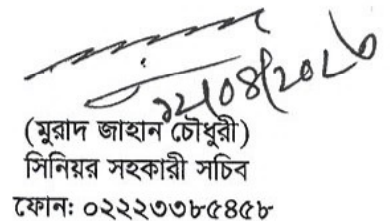 ১২/০৪/২০২৬
(মুরাদ জাহান চৌধুরী)
সিনিয়র সহকারী সচিব
ফোনঃ ০২২২৩৩৮৫৪৫৮